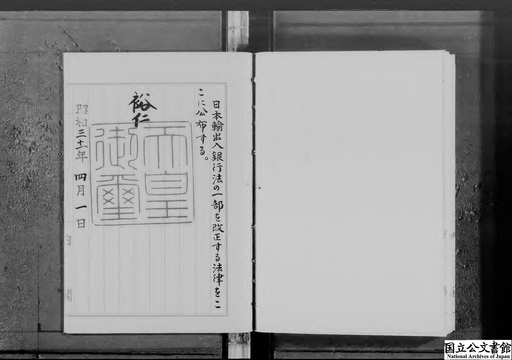 日本輸出入銀行法の一部を改正する法律をこ
こに公布する。
裕仁
天皇
御璽
昭和三十一年 四月 一日
国立公文書館
National Archives of Japan